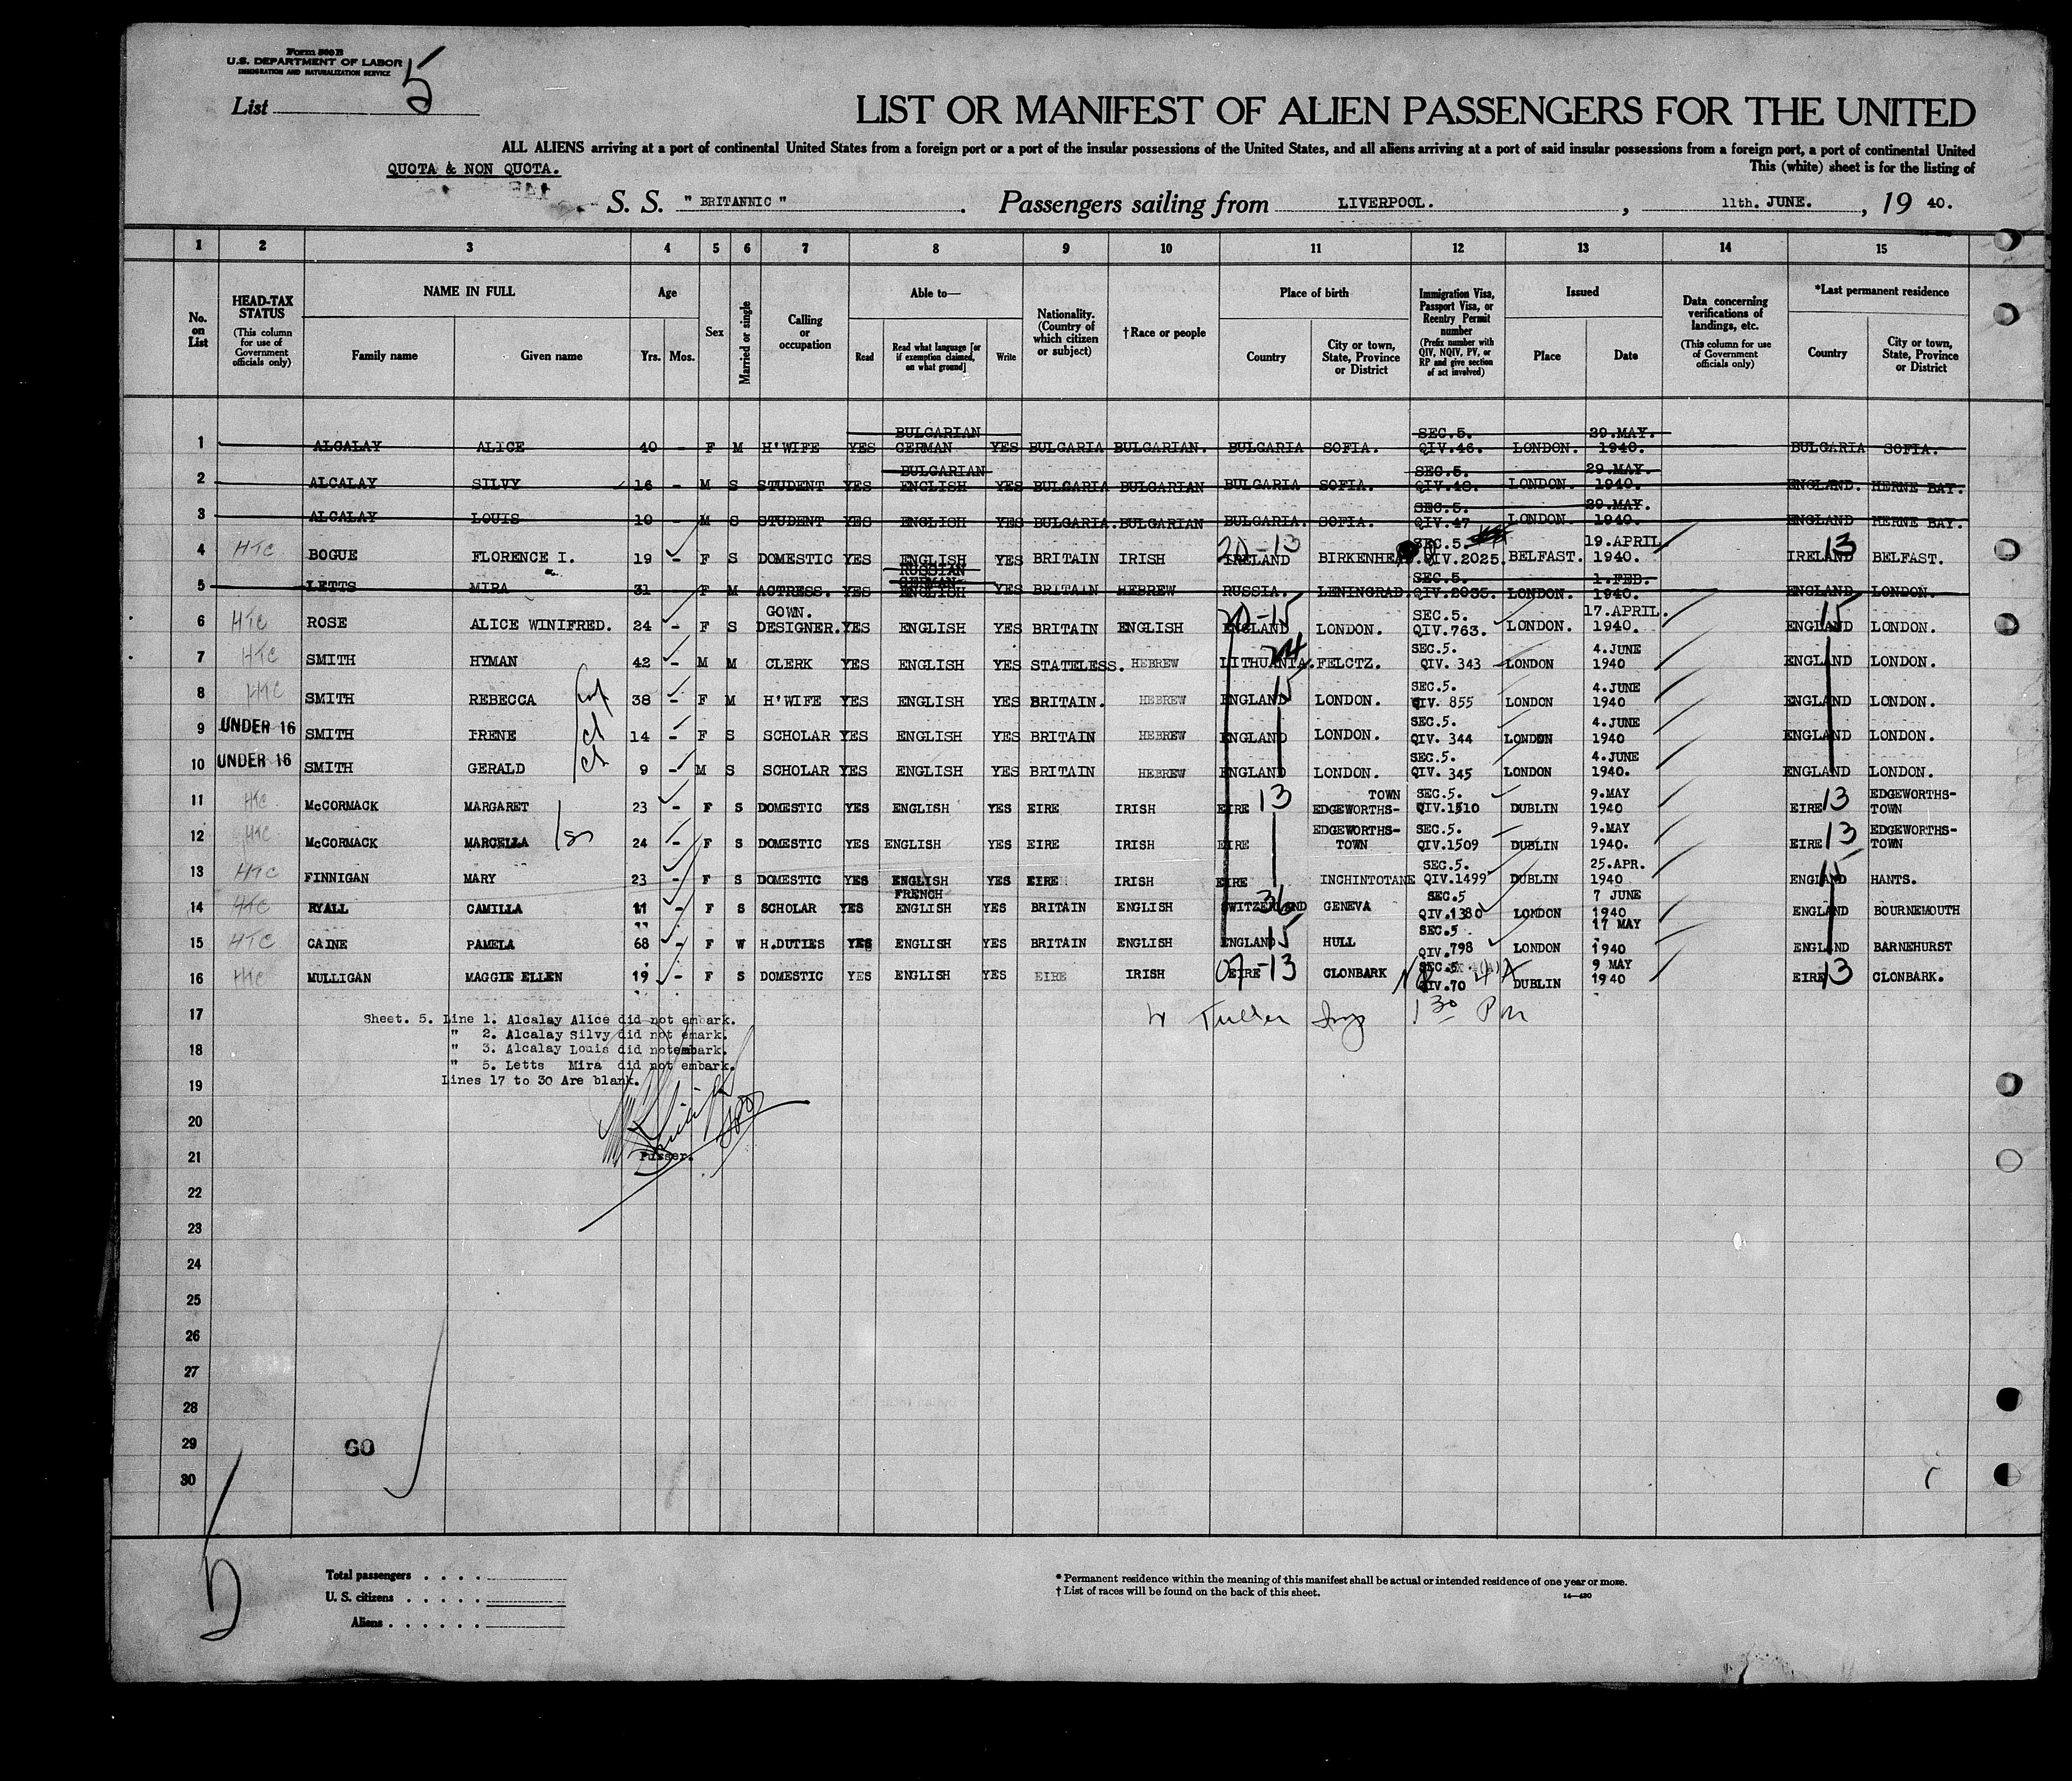 Form 500 B
U.S. DEPARTMENT OF LABOR
IMMIGRATION AND NATURALIZATION SERVICE
List 5
LIST OR MANIFEST OF ALIEN PASSENGERS FOR THE UNITED
ALL ALIENS arriving at a port of continental United States from a foreign port or a port of the insular possessions of the United States, and all aliens arriving at a port of said insular possessions from a foreign port, a port of continental United
QUOTA & NON QUOTA.
This (white) sheet is for the listing of
S. S. " BRITANNIC ". Passengers sailing from LIVERPOOL. , 11th. JUNE. , 19 40.
1 2 3 4 5 6 7 8 9 10 11 12 13 14 15
No. on List
HEAD-TAX STATUS (This column for use of Government officials only)
NAME IN FULL Family name Given name
Age Yrs. Mos.
Sex
Married or single
Calling or occupation
Able to— Read Read what language [or if exemption claimed, on what ground] Write
Nationality. (Country of which citizen or subject)
†Race or people
Place of birth Country City or town, State, Province or District
Immigration Visa, Passport Visa, or Reentry Permit number (Prefix number with QIV, NQIV, PV, or RP and give section of act involved)
Issued Place Date
Data concerning verifications of landings, etc. (This column for use of Government officials only)
*Last permanent residence Country City or town, State, Province or District
1 ALCALAY ALICE 40 - F M H'WIFE YES BULGARIAN GERMAN YES BULGARIA BULGARIAN. BULGARIA SOFIA. SEC.5. QIV.46. LONDON. 29.MAY. 1940. BULGARIA SOFIA.
2 ALCALAY SILVY 16 - M S STUDENT YES BULGARIAN ENGLISH YES BULGARIA BULGARIAN BULGARIA SOFIA. SEC.5. QIV.48. LONDON. 29.MAY. 1940. ENGLAND. HERNE BAY.
3 ALCALAY LOUIS 10 - M S STUDENT YES ENGLISH YES BULGARIA. BULGARIAN BULGARIA. SOFIA. SEC.5. QIV.47 LONDON. 29.MAY. 1940. ENGLAND HERNE BAY.
4 HTC BOGUE FLORENCE I. 19 - F S DOMESTIC YES ENGLISH YES BRITAIN IRISH 20-13 IRELAND BIRKENHEAD. SEC.5. QIV.2025. BELFAST. 19.APRIL. 1940. IRELAND 13 BELFAST.
5 LETTS MIRA 31 F M ACTRESS. YES RUSSIAN GERMAN ENGLISH YES BRITAIN HEBREW RUSSIA. LENINGRAD. SEC.5. QIV.2035. LONDON. 1.FEB. 1940. ENGLAND LONDON.
6 HTC ROSE ALICE WINIFRED. 24 - F S GOWN. DESIGNER. YES ENGLISH YES BRITAIN ENGLISH 20-15 ENGLAND LONDON. SEC.5. QIV.763. LONDON. 17.APRIL. 1940. 15 ENGLAND LONDON.
7 HTC SMITH HYMAN 42 - M M CLERK YES ENGLISH YES STATELESS. HEBREW LITHUANIA. FELCTZ. SEC.5. QIV. 343 LONDON 4.JUNE 1940 ENGLAND LONDON.
8 HTC SMITH REBECCA 38 - F M H'WIFE YES ENGLISH YES BRITAIN. HEBREW 15 ENGLAND LONDON. SEC.5. QIV. 855 LONDON 4.JUNE 1940 ENGLAND LONDON.
9 UNDER 16 SMITH IRENE 14 - F S SCHOLAR YES ENGLISH YES BRITAIN HEBREW ENGLAND LONDON. SEC.5. QIV. 344 LONDON 4.JUNE 1940 ENGLAND LONDON.
10 UNDER 16 SMITH GERALD 9 - M S SCHOLAR YES ENGLISH YES BRITAIN HEBREW ENGLAND LONDON. SEC.5. QIV. 345 LONDON 4.JUNE 1940. ENGLAND LONDON.
11 HTC McCORMACK MARGARET 23 - F S DOMESTIC YES ENGLISH YES EIRE IRISH EIRE 13 TOWN EDGEWORTHS- SEC.5. QIV.1510 DUBLIN 9.MAY 1940 EIRE 13 EDGEWORTHS-TOWN
12 HTC McCORMACK MARCELLA 24 - F S DOMESTIC YES ENGLISH YES EIRE IRISH EIRE EDGEWORTHS-TOWN SEC.5. QIV.1509 DUBLIN 9.MAY 1940. EIRE 13 EDGEWORTHS-TOWN
13 HTC FINNIGAN MARY 23 - F S DOMESTIC YES ENGLISH YES EIRE IRISH EIRE INCHINTOTANE SEC.5. QIV.1499 DUBLIN 25.APR. 1940 15 ENGLAND HANTS.
14 HTC RYALL CAMILLA 11 - F S SCHOLAR YES FRENCH ENGLISH YES BRITAIN ENGLISH 36 SWITZERLAND GENEVA SEC.5 QIV.1380 LONDON 7 JUNE 1940 ENGLAND BOURNEMOUTH
15 HTC CAINE PAMELA 68 - F W H.DUTIES YES ENGLISH YES BRITAIN ENGLISH ENGLAND 15 HULL SEC.5. QIV.798 LONDON 17 MAY 1940 ENGLAND BARNEHURST
16 HTC MULLIGAN MAGGIE ELLEN 19 - F S DOMESTIC YES ENGLISH YES EIRE IRISH 07-13 EIRE CLONBARK SEC.5. QIV.70 DUBLIN 9 MAY 1940 EIRE 13 CLONBARK.
17
Sheet. 5. Line 1. Alcalay Alice did not embark.
" 2. Alcalay Silvy did not emark.
18
" 3. Alcalay Louis did notembark.
" 5. Letts Mira did not embark.
19
Lines 17 to 30 Are blank.
20
21
Purser.
22
23
24
25
26
27
28
29 GO
30
5
Total passengers . . . .
U. S. citizens . . . . .
Aliens . . . . . .
* Permanent residence within the meaning of this manifest shall be actual or intended residence of one year or more.
† List of races will be found on the back of this sheet.
14—430